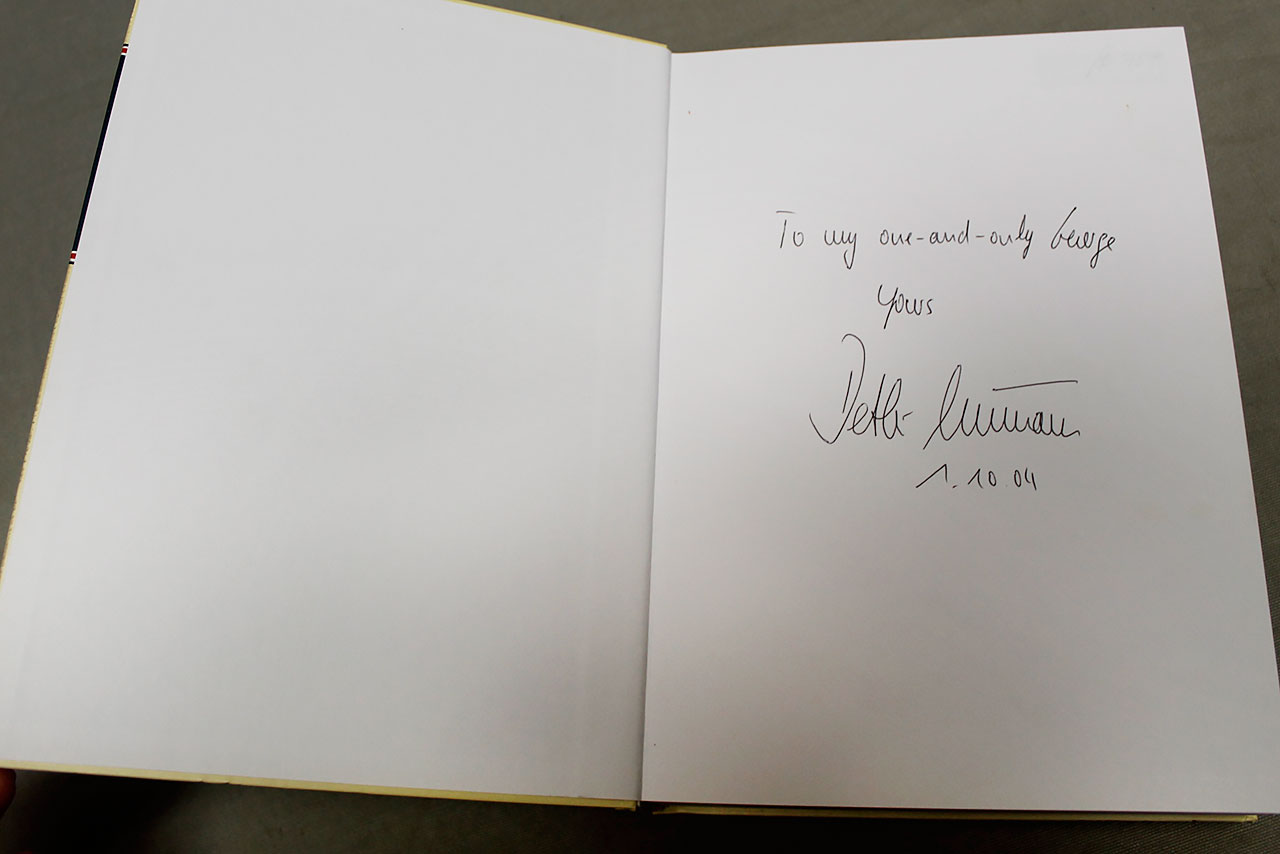 To my one-and-only George
Yours
1.10.04